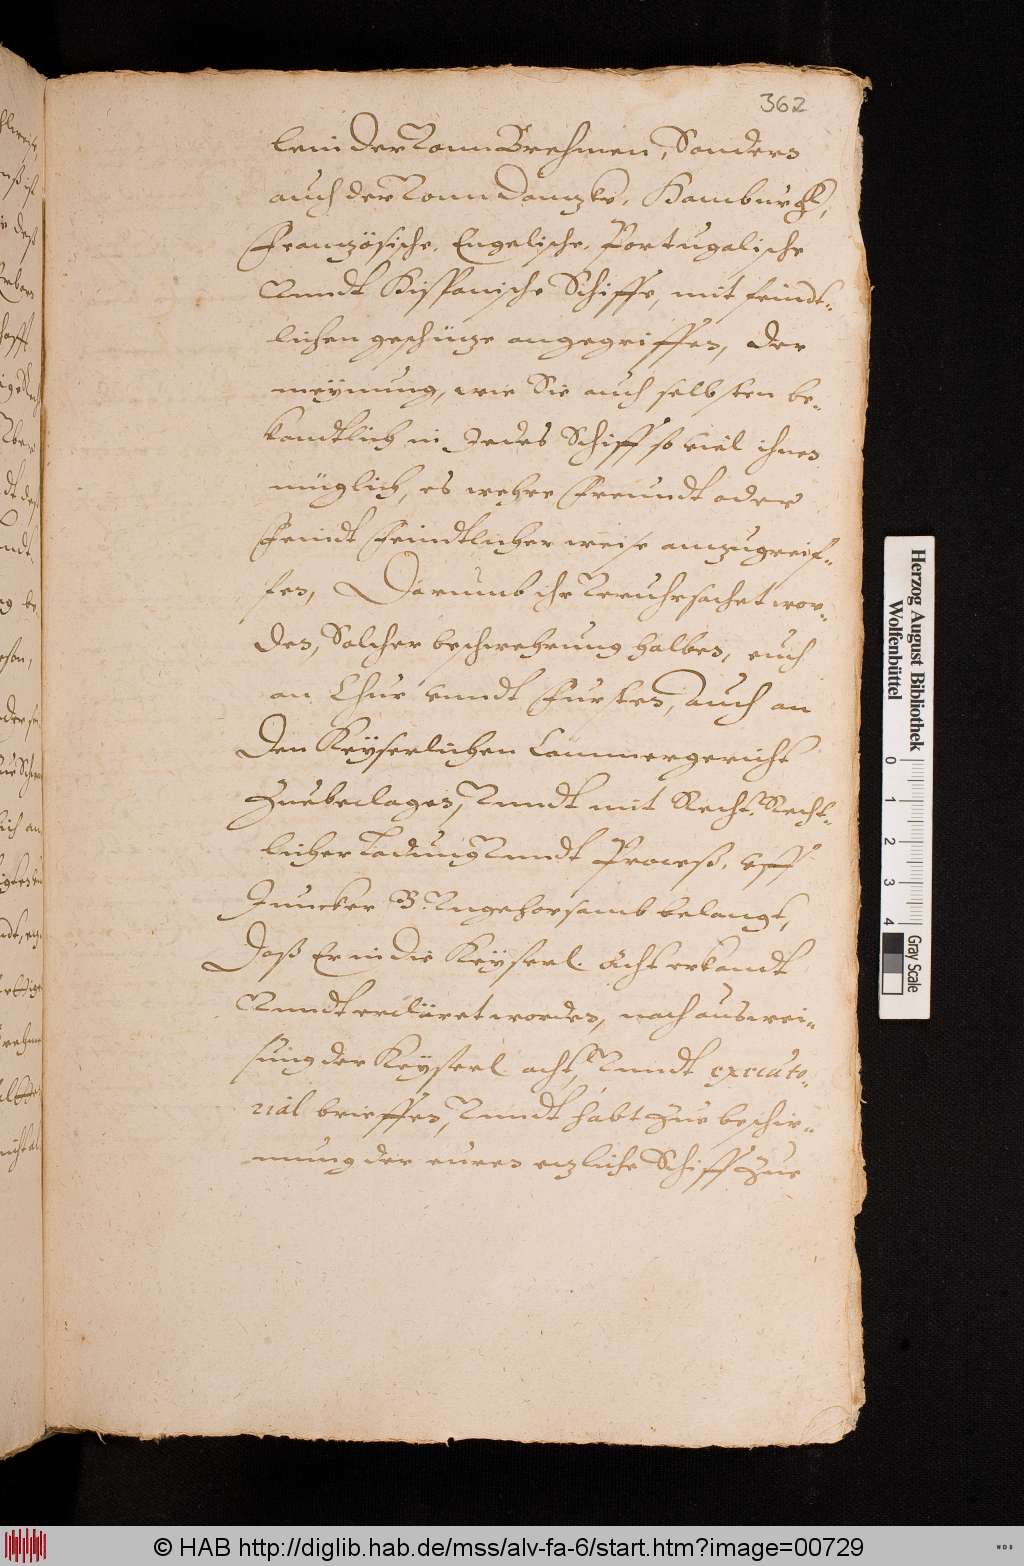 362
lein der Vonn Brehmen, Sonders
auch der Vonn Danzke, Hamburch,
Französische, Engelische, Portugalische
Vnndt Hispanische Schiffe, mit feindt-
lichen geschütze angegriffen, der
meÿnung, wie Sie auch selbsten be-
kandtlich in Jedes Schiff so viel ihnen
müglich, es wehre Freundt oder
Feindt Feindtlicher weise anzugreif-
fen, Darumb ihr Veruhrsachet wor-
den, Solcher beschwehrung halben, euch
an Chur vnndt Fursten, auch an
den Keÿserlichen Cammergericht
Zuebeclagen, Vnndt mit Recht, Recht-
licher Ladung Vnndt Proceß, vff
Juncker B. Vngehorsamb belangt,
Daß Er in die Keÿserl. Acht erkandt
Vnndt ercläret worden, nach auswei-
sung der Keÿserl. acht, Vnndt executo-
rial brieffen, Vnndt habt Zue beschir-
mung der euren etzliche Schiff Zue
Herzog August Bibliothek
Wolfenbüttel
0 1 2 3 4
Gray Scale
© HAB http://diglib.hab.de/mss/alv-fa-6/start.htm?image=00729